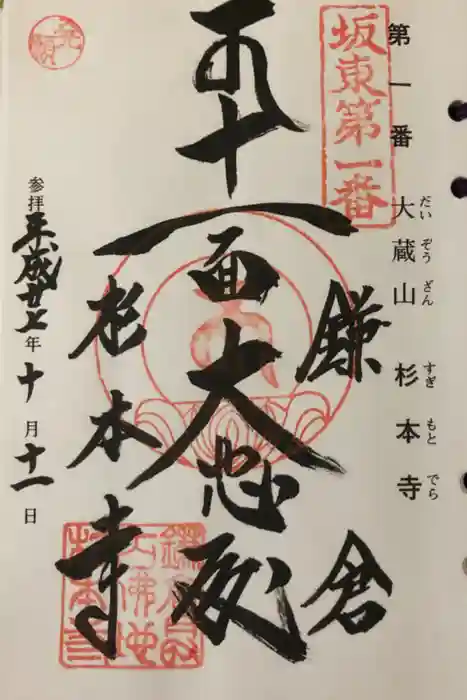 第一番 大蔵山 杉本寺
だいぞうざん すぎもとでら
坂東第一番
鎌倉
十一面大悲殿
杉本寺
発願
参拝平成廿七年十月十一日